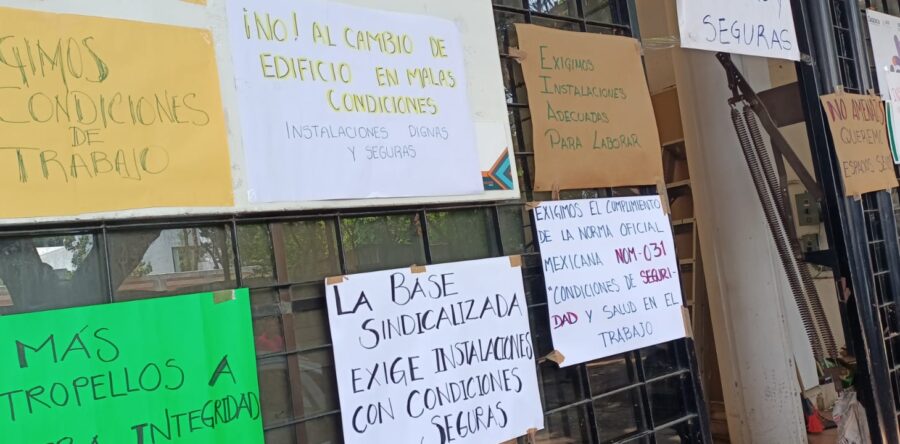 ¡NO! AL CAMBIO DE
EDIFICIO EN MALAS
CONDICIONES
INSTALACIONES DIGNAS
Y SEGURAS
EXIGIMOS
INSTALACIONES
ADECUADAS
PARA LABORAR
SEGURAS
GIMOS
CONDICIONES
DE
TRABAJO
NO AMENA
QUEREM
ESPACIOS SE
EXIGIMOS EL CUMPLIMIENTO
DE LA NORMA OFICIAL
MEXICANA NOM-031
"CONDICIONES DE SEGURI-
DAD Y SALUD EN EL
TRABAJO
LA BASE
SINDICALIZADA
EXIGE INSTALACIONES
CON CONDICIONES
SEGURAS
MÁS
TROPELLOS A
INTEGRIDAD